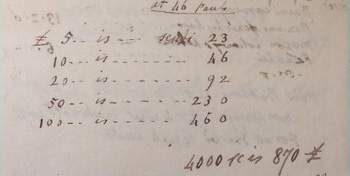 at 46 Pauls
£ 5 -- is -- scudi 23
10 -- is - - - - - 46
20 -- is - - - - - 92
50 -- is - - - - - 230
100 -- is - - - - - 460
4000 sc is 870 £